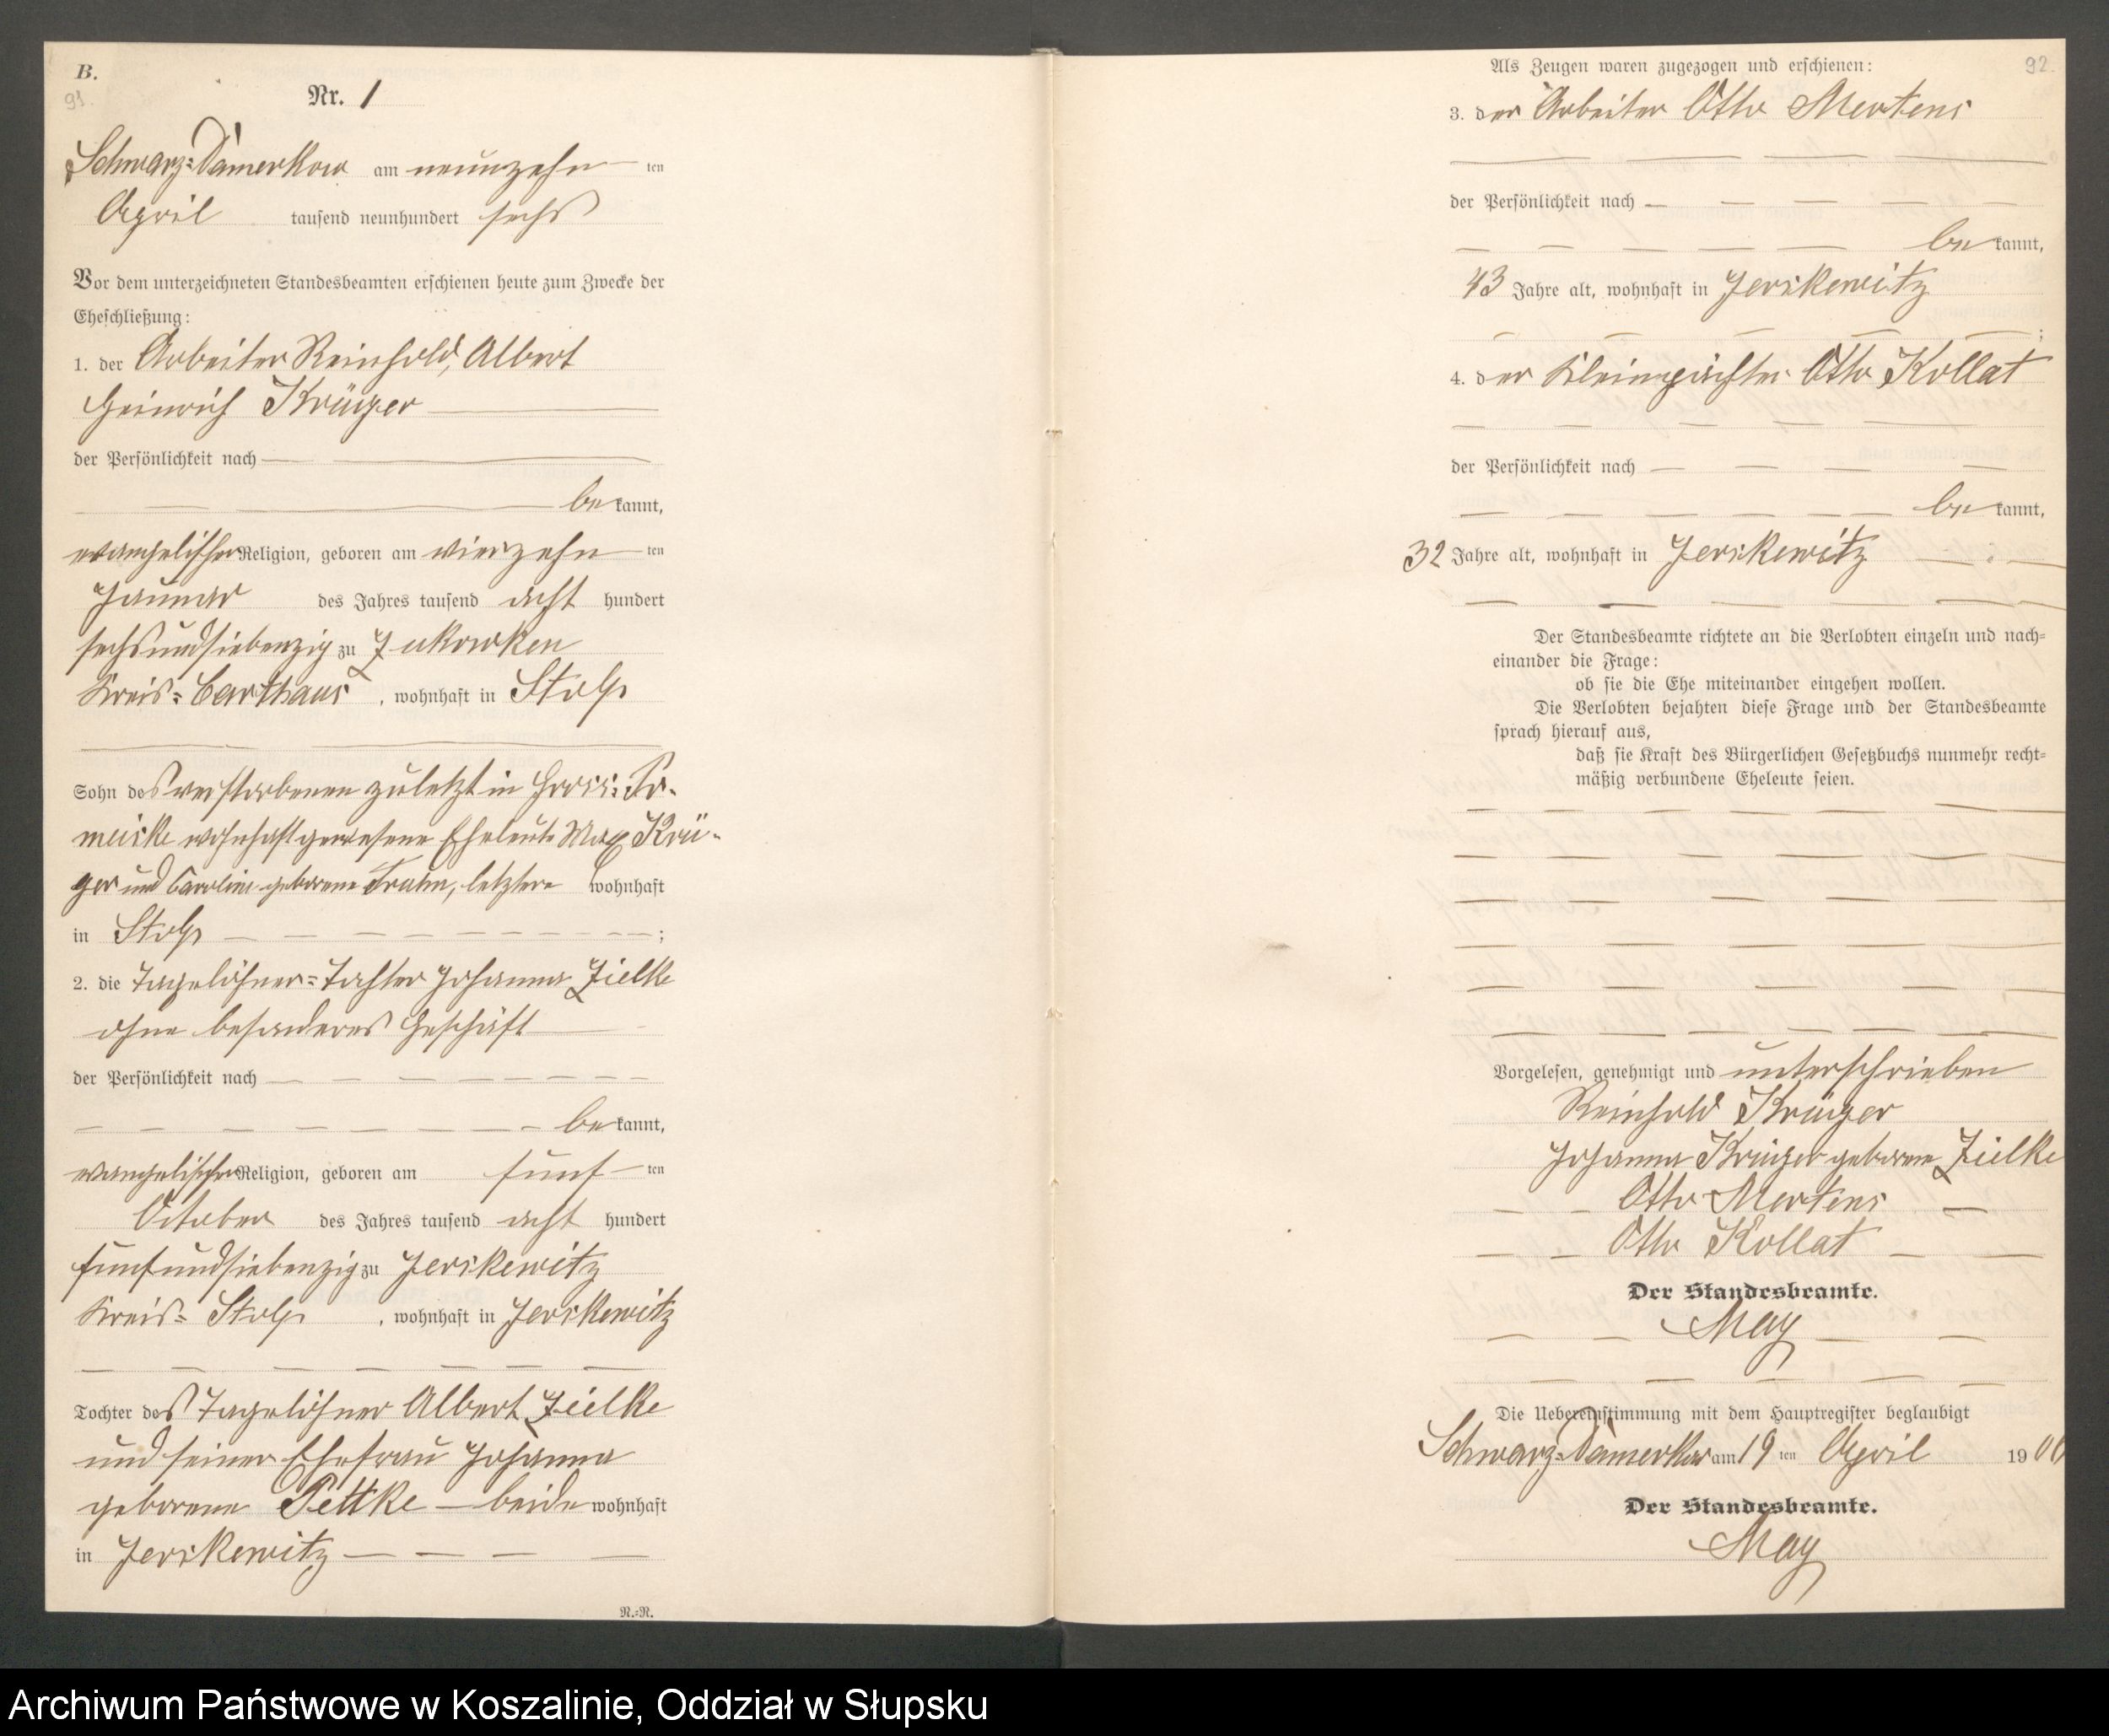 B.
91.
Nr. 1
Schwarz-Damerkow am neunzehn ten
April tausend neunhundert sechs
Vor dem unterzeichneten Standesbeamten erschienen heute zum Zwecke der
Eheschließung:
1. der Arbeiter Reinhold, Albert
Heinrich Krüger
der Persönlichkeit nach
be kannt,
evangelischer Religion, geboren am vierzehn ten
Januar des Jahres tausend acht hundert
sechsundsiebenzig zu Zukowken
Kreis-Carthaus, wohnhaft in Stolp
Sohn des verstorbenen zuletzt in Gross-
meiske wohnhaft gewesene Eheleute Max Krü-
ger und Caroline geborene letztere wohnhaft
in Stolp ;
2. die Tagelöhner-Tochter Johanna Zielke
ohne besonderes Geschäft
der Persönlichkeit nach
be kannt,
evangelischer Religion, geboren am fünf ten
October des Jahres tausend acht hundert
fünfundsiebenzig zu Jerskewitz
Kreis-Stolp, wohnhaft in Jerskewitz
Tochter des Tagelöhner Albert Zielke
und seiner Ehefrau Johanna
geborene Pettke beide wohnhaft
in Jerskewitz
N.-N.
92.
Als Zeugen waren zugezogen und erschienen:
3. der Arbeiter Otto Mertens
der Persönlichkeit nach
be kannt,
43 Jahre alt, wohnhaft in Jerskewitz
;
4. der Kleinpächter Otto Kollat
der Persönlichkeit nach
be kannt,
32 Jahre alt, wohnhaft in Jerskewitz .
Der Standesbeamte richtete an die Verlobten einzeln und nach-
einander die Frage:
ob sie die Ehe miteinander eingehen wollen.
Die Verlobten bejahten diese Frage und der Standesbeamte
sprach hierauf aus,
daß sie Kraft des Bürgerlichen Gesetzbuchs nunmehr recht-
mäßig verbundene Eheleute seien.
Vorgelesen, genehmigt und unterschrieben
Reinhold Krüger
Johanna Krüger geborene Zielke
Otto Mertens
Otto Kollat
Der Standesbeamte.
May
Die Uebereinstimmung mit dem Hauptregister beglaubigt
Schwarz-Damerkow am 19 ten April 1906
Der Standesbeamte.
May
Archiwum Państwowe w Koszalinie, Oddział w Słupsku